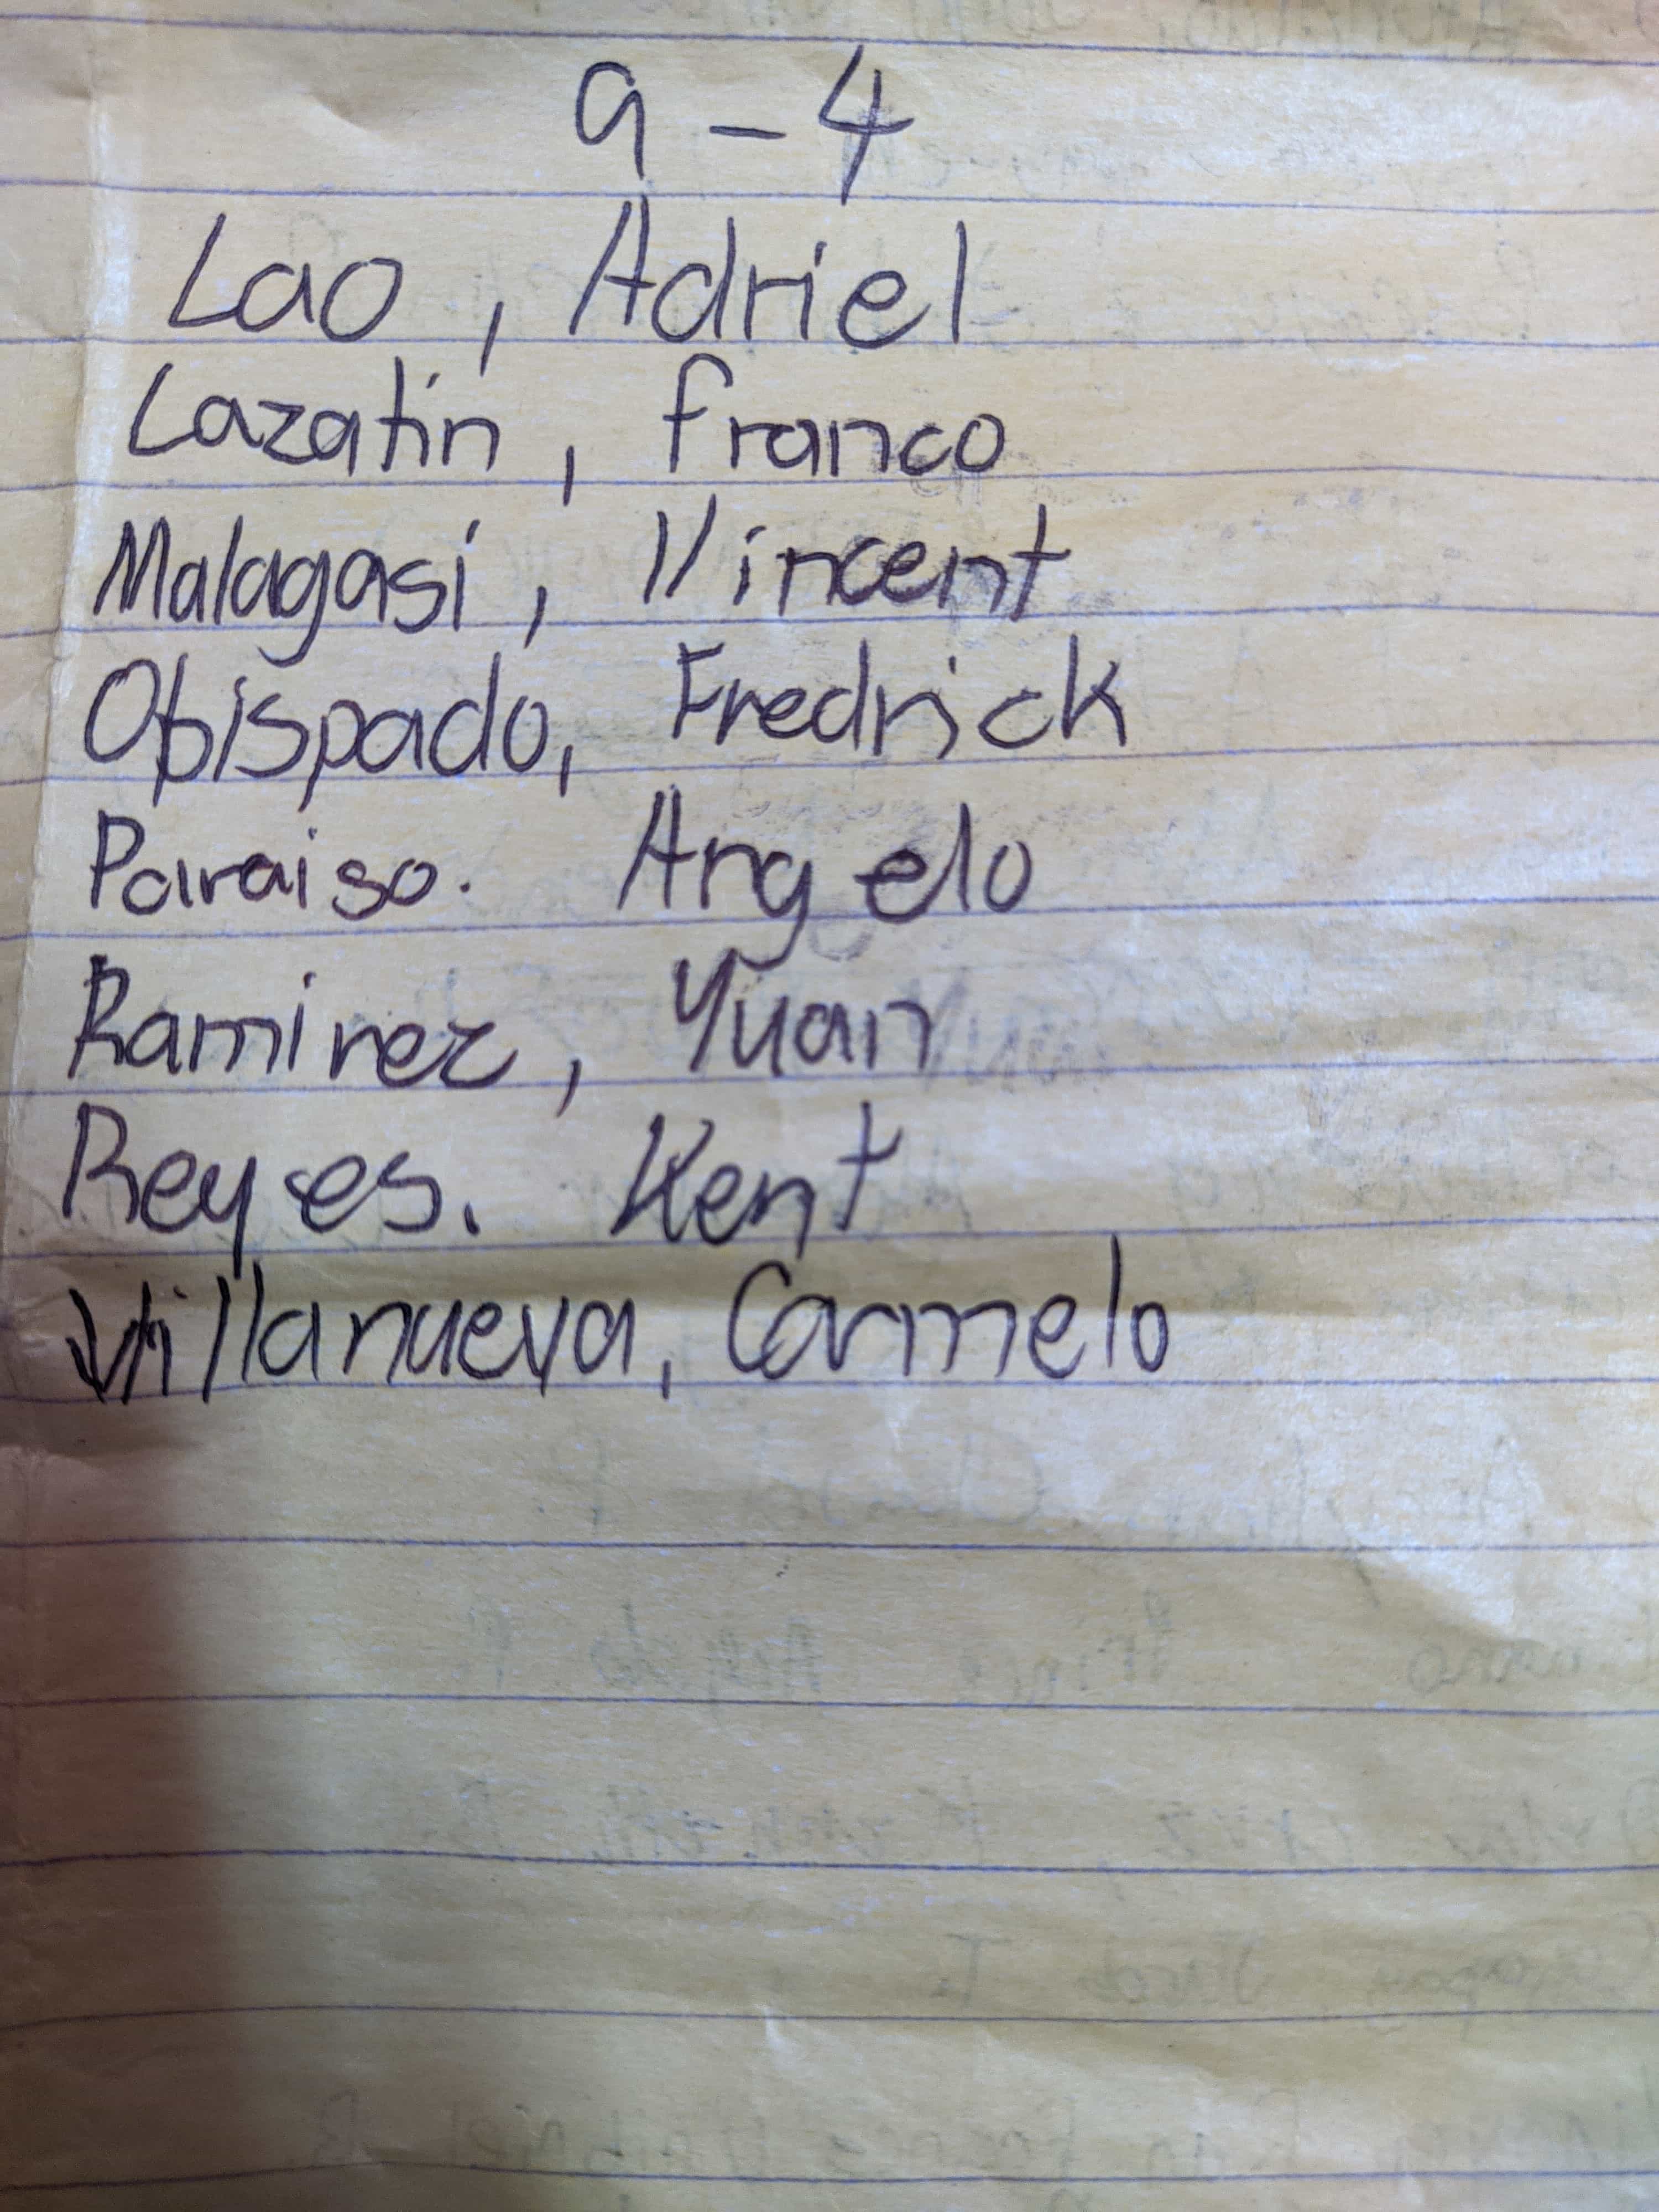 9 - 4
Lao, Adriel
Lazatin, franco
Malagasi, Vincent
Obispado, Fredrick
Paraiso. Angelo
Ramirez, Yuan
Reyes. Kent
Villanueva, Carmelo